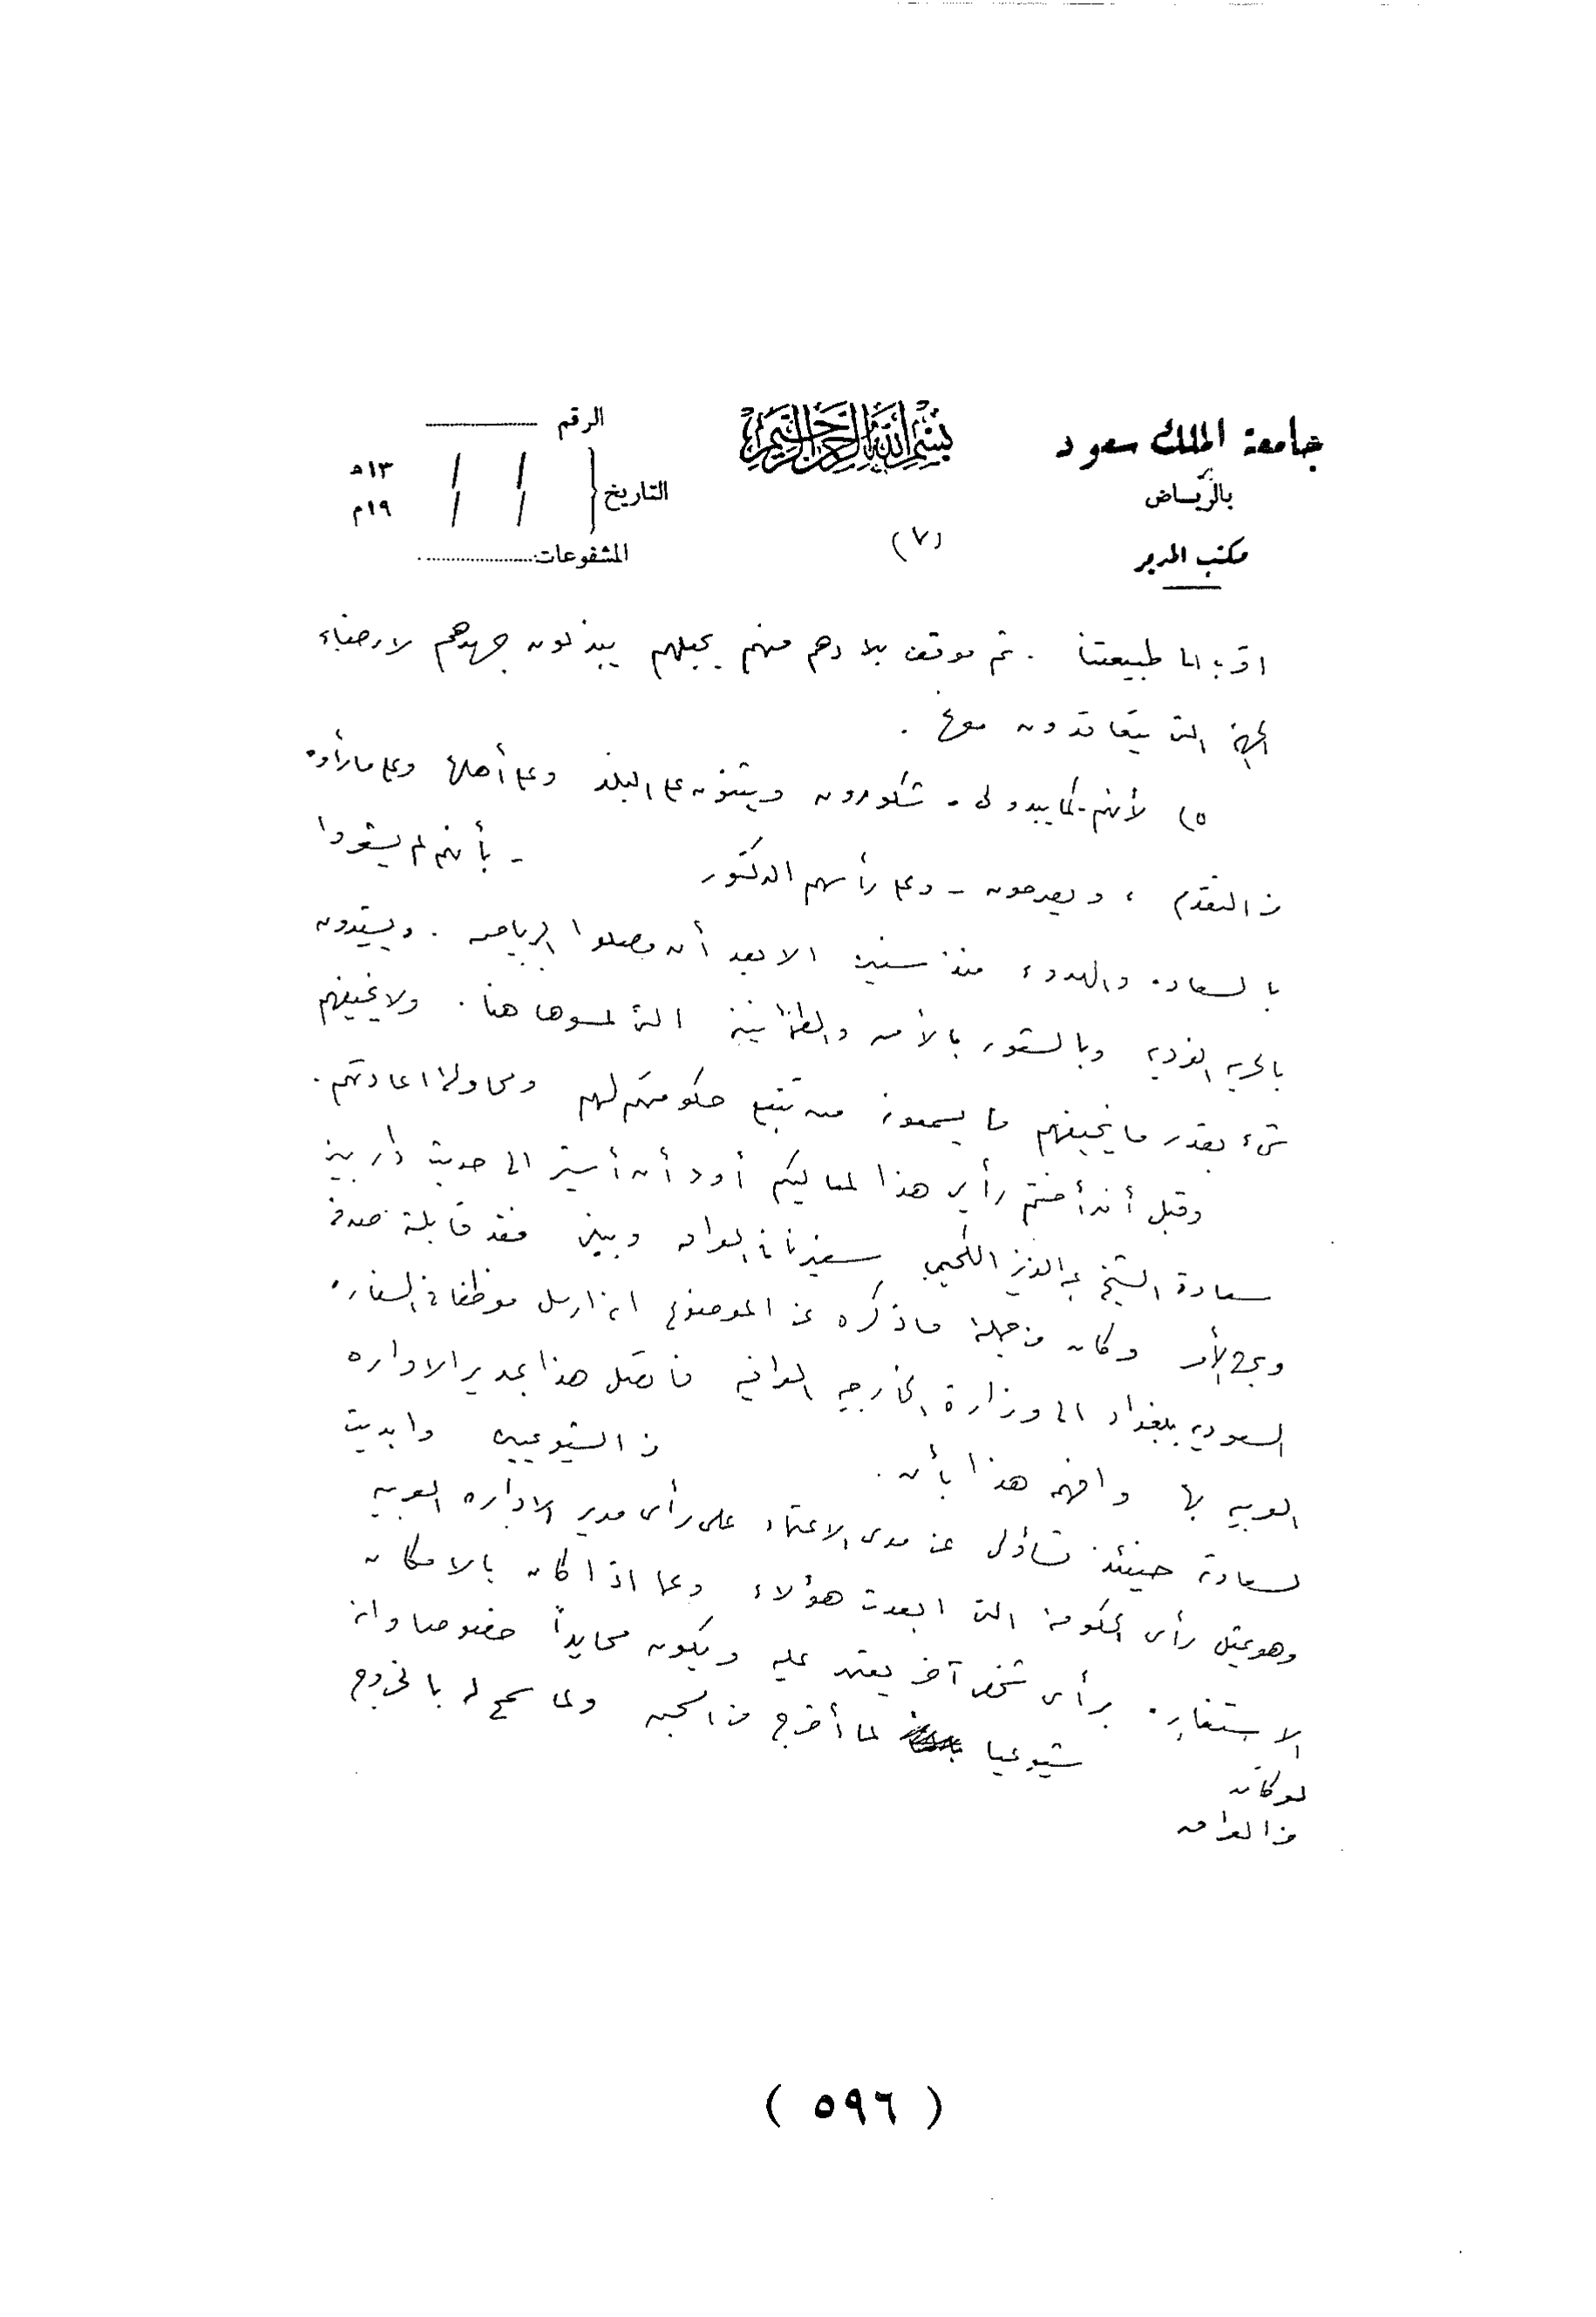 جامعة الملك سعود
بالرياض
مكتب المدير
بسم الله الرحمن الرحيم
(٧)
الرقم
التاريخ / / ١٣هـ
/ / ١٩م
المشفوعات:
اقرب الى طبيعتنا . ثم موقف بلادهم منهم يجعلهم يبذلون جهدهم لارضاء
الجهة التى يتعاقدون معها .
٥) لأنهم - كما يبدو لى - شكورون ويثنون على البلد وعلى أهلها وعلى ما رأوه
من التقدم ، ويصرحون - وعلى رأسهم الدكتور - بأنهم لم يشعروا
بالسعادة والهدوء منذ سنين الا بعد أن وصلوا الرياض . ويشيدون
بالحريه الفرديه وبالشعور بالأمن والطمأنينة التى لمسوها هنا . ولا يخيفهم
شىء بقدر ما يخيفهم ما يسمعونه من تتبع حكومتهم لهم ومحاولة اعادتهم .
وقبل أن أختم رأيى هذا لمعاليكم أود أن أشير الى حديث دار بين
سعادة الشيخ عبد العزيز الكحيمى سفيرنا فى العراق وبينى فقد قابلته صدفة
وبحث الأمر وكان من جملة ما ذكره عن الموضوع انه ارسل موظفا فى السفاره
السعوديه ببغداد الى وزارة الخارجيه العراقيه فاتصل هذا بمدير الاداره
العربيه بها وافهمه هذا بأن من الشيوعيين وابديت
لسعادته حينئذ تساؤلى عن مدى الاعتماد على رأى مدير الاداره العربيه
وهو يمثل رأى الحكومة التى ابعدت هؤلاء وعما اذا كان بالامكان
الاستنارة برأى شخص آخر يعتمد عليه ويكون محايداً خصوصا وانه
لو كان شيوعيا لما أخرج من السجن ولما سمح له بالخروج
من العراق
( ٥٩٦ )